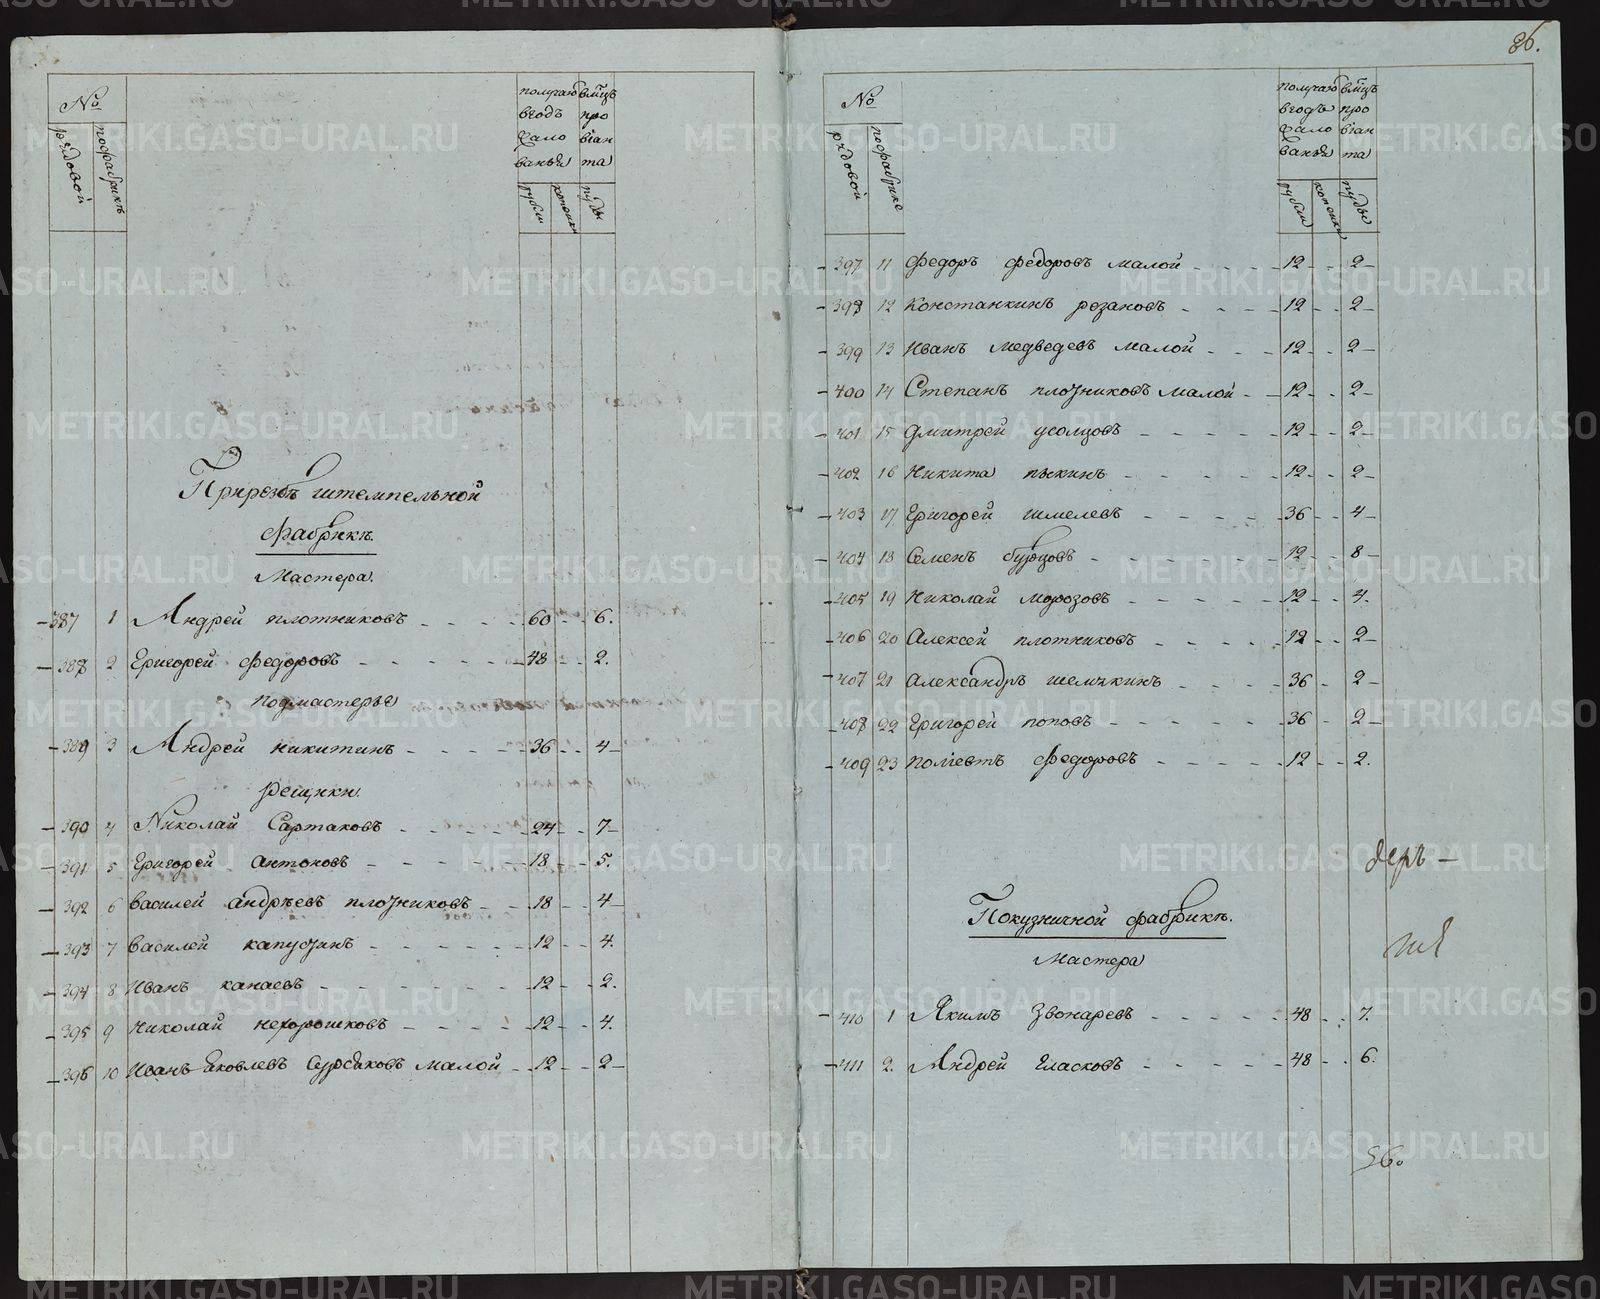 №
рядовой
пофабрикѣ
получаю
вгодъ
жало
ванья
вмцъ
про
віан
та
рубли
копейки
пуды
Прирезбѣ штемпельной
фабрикѣ.
Мастера.
387 1 Андрей плотниковъ 60 6.
388 2 Григорей федоровъ 48 2.
подмастерье
389 3 Андрей никитинъ 36 4
рещики.
390 4 Николай Сартаковъ 24 7
391 5 Григорей антоновъ 18 5.
392 6 василей андрѣевъ плотниковъ 18 4
393 7 василей капустинъ 12 4.
394 8 Иванъ канаевъ 12 2.
395 9 николай нехорошковъ 12 4.
396 10 Иванъ яковлевъ Сурсяковъ малой 12 2
86.
№
рядовой
пофабрике
получаю
вгодъ
жало
ванья
вмцъ
про
віан
та
рубли
копейки
пуды
397 11 федоръ федоровъ малой 12 2
398 12 Констанкинъ резановъ 12 2
399 13 Иванъ медведевъ малой 12 2
400 14 Степанъ плотниковъ малой 12 2
401 15 дмитрей усолцовъ 12 2
402 16 Никита пѣкинъ 12 2
403 17 Григорей шмелевъ 36 4
404 18 Семенъ бурцовъ 12 8
405 19 Николай морозовъ 12 4.
406 20 Алексей плотниковъ 12 2
407 21 Александръ шемякинъ 36 2
408 22 Григорей поповъ 36 2
409 23 полиевтъ федоровъ 12 2.
деръ
Покузничной фабрикѣ.
Мастера
410 1 Якимъ Звонаревъ 48 7.
411 2. Андрей Гласковъ 48 6.
METRIKI.GASO-URAL.RU